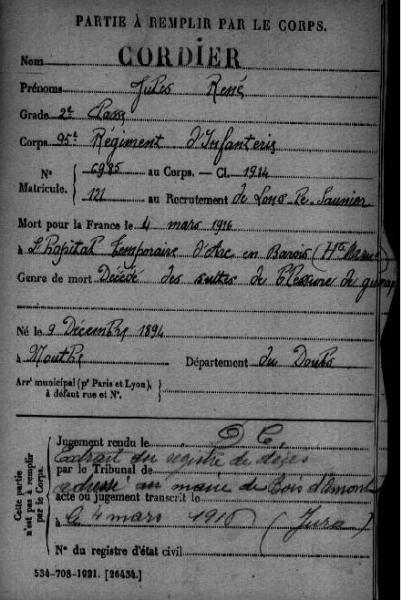 PARTIE À REMPLIR PAR LE CORPS.
Nom CORDIER
Prénoms Jules René
Grade 2e Classe
Corps 95e Régiment d'Infanterie
N° Matricule. 6985 au Corps. — Cl. 1914
121 au Recrutement de Lons-le-Saunier
Mort pour la France le 4 mars 1916
à l'hôpital temporaire d'Arc en Barois (Hte Marne)
Genre de mort Décédé des suites de blessures de guerre
Né le 9 Décembre 1894
à Mouthe Département du Doubs
Arrt municipal (pr Paris et Lyon), à défaut rue et N°.
Cette partie n'est pas à remplir par le Corps.
Jugement rendu le D. C.
Extrait du registre de décès
par le Tribunal de
adressé au maire de Bois d'Amont
acte ou jugement transcrit le
le 4 mars 1916 (Jura)
N° du registre d'état civil
534-708-1921. [26434.]